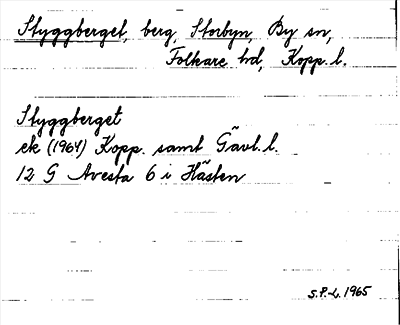 Styggberget, berg, Storbyn, By sn,
Folkare hd, Kopp. l.
Styggberget
ek (1964) Kopp. samt Gävl. l.
12 G Avesta 6 i Hästen
S.P-L. 1965